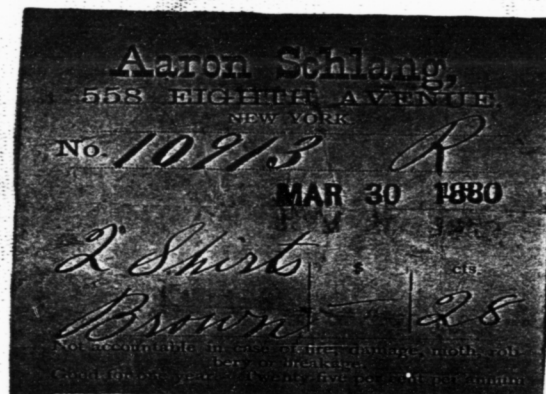 Aaron Schlang,
558 EIGHTH AVENUE,
NEW YORK
No. 10913 R
MAR 30 1880
2 Shirts $ cts.
Brown — 28
Not accountable in case of fire, damage, moth, rob-
bery or breakage.
Good for one year. Twenty-five per cent per annum